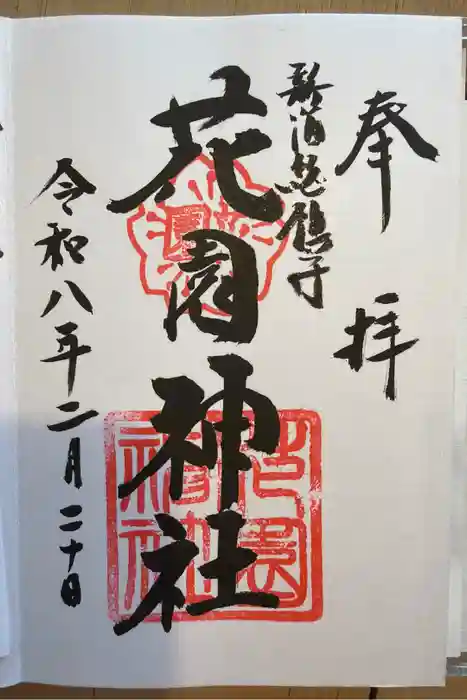 奉拝
新宿総鎮守
花園神社
令和八年二月二十日